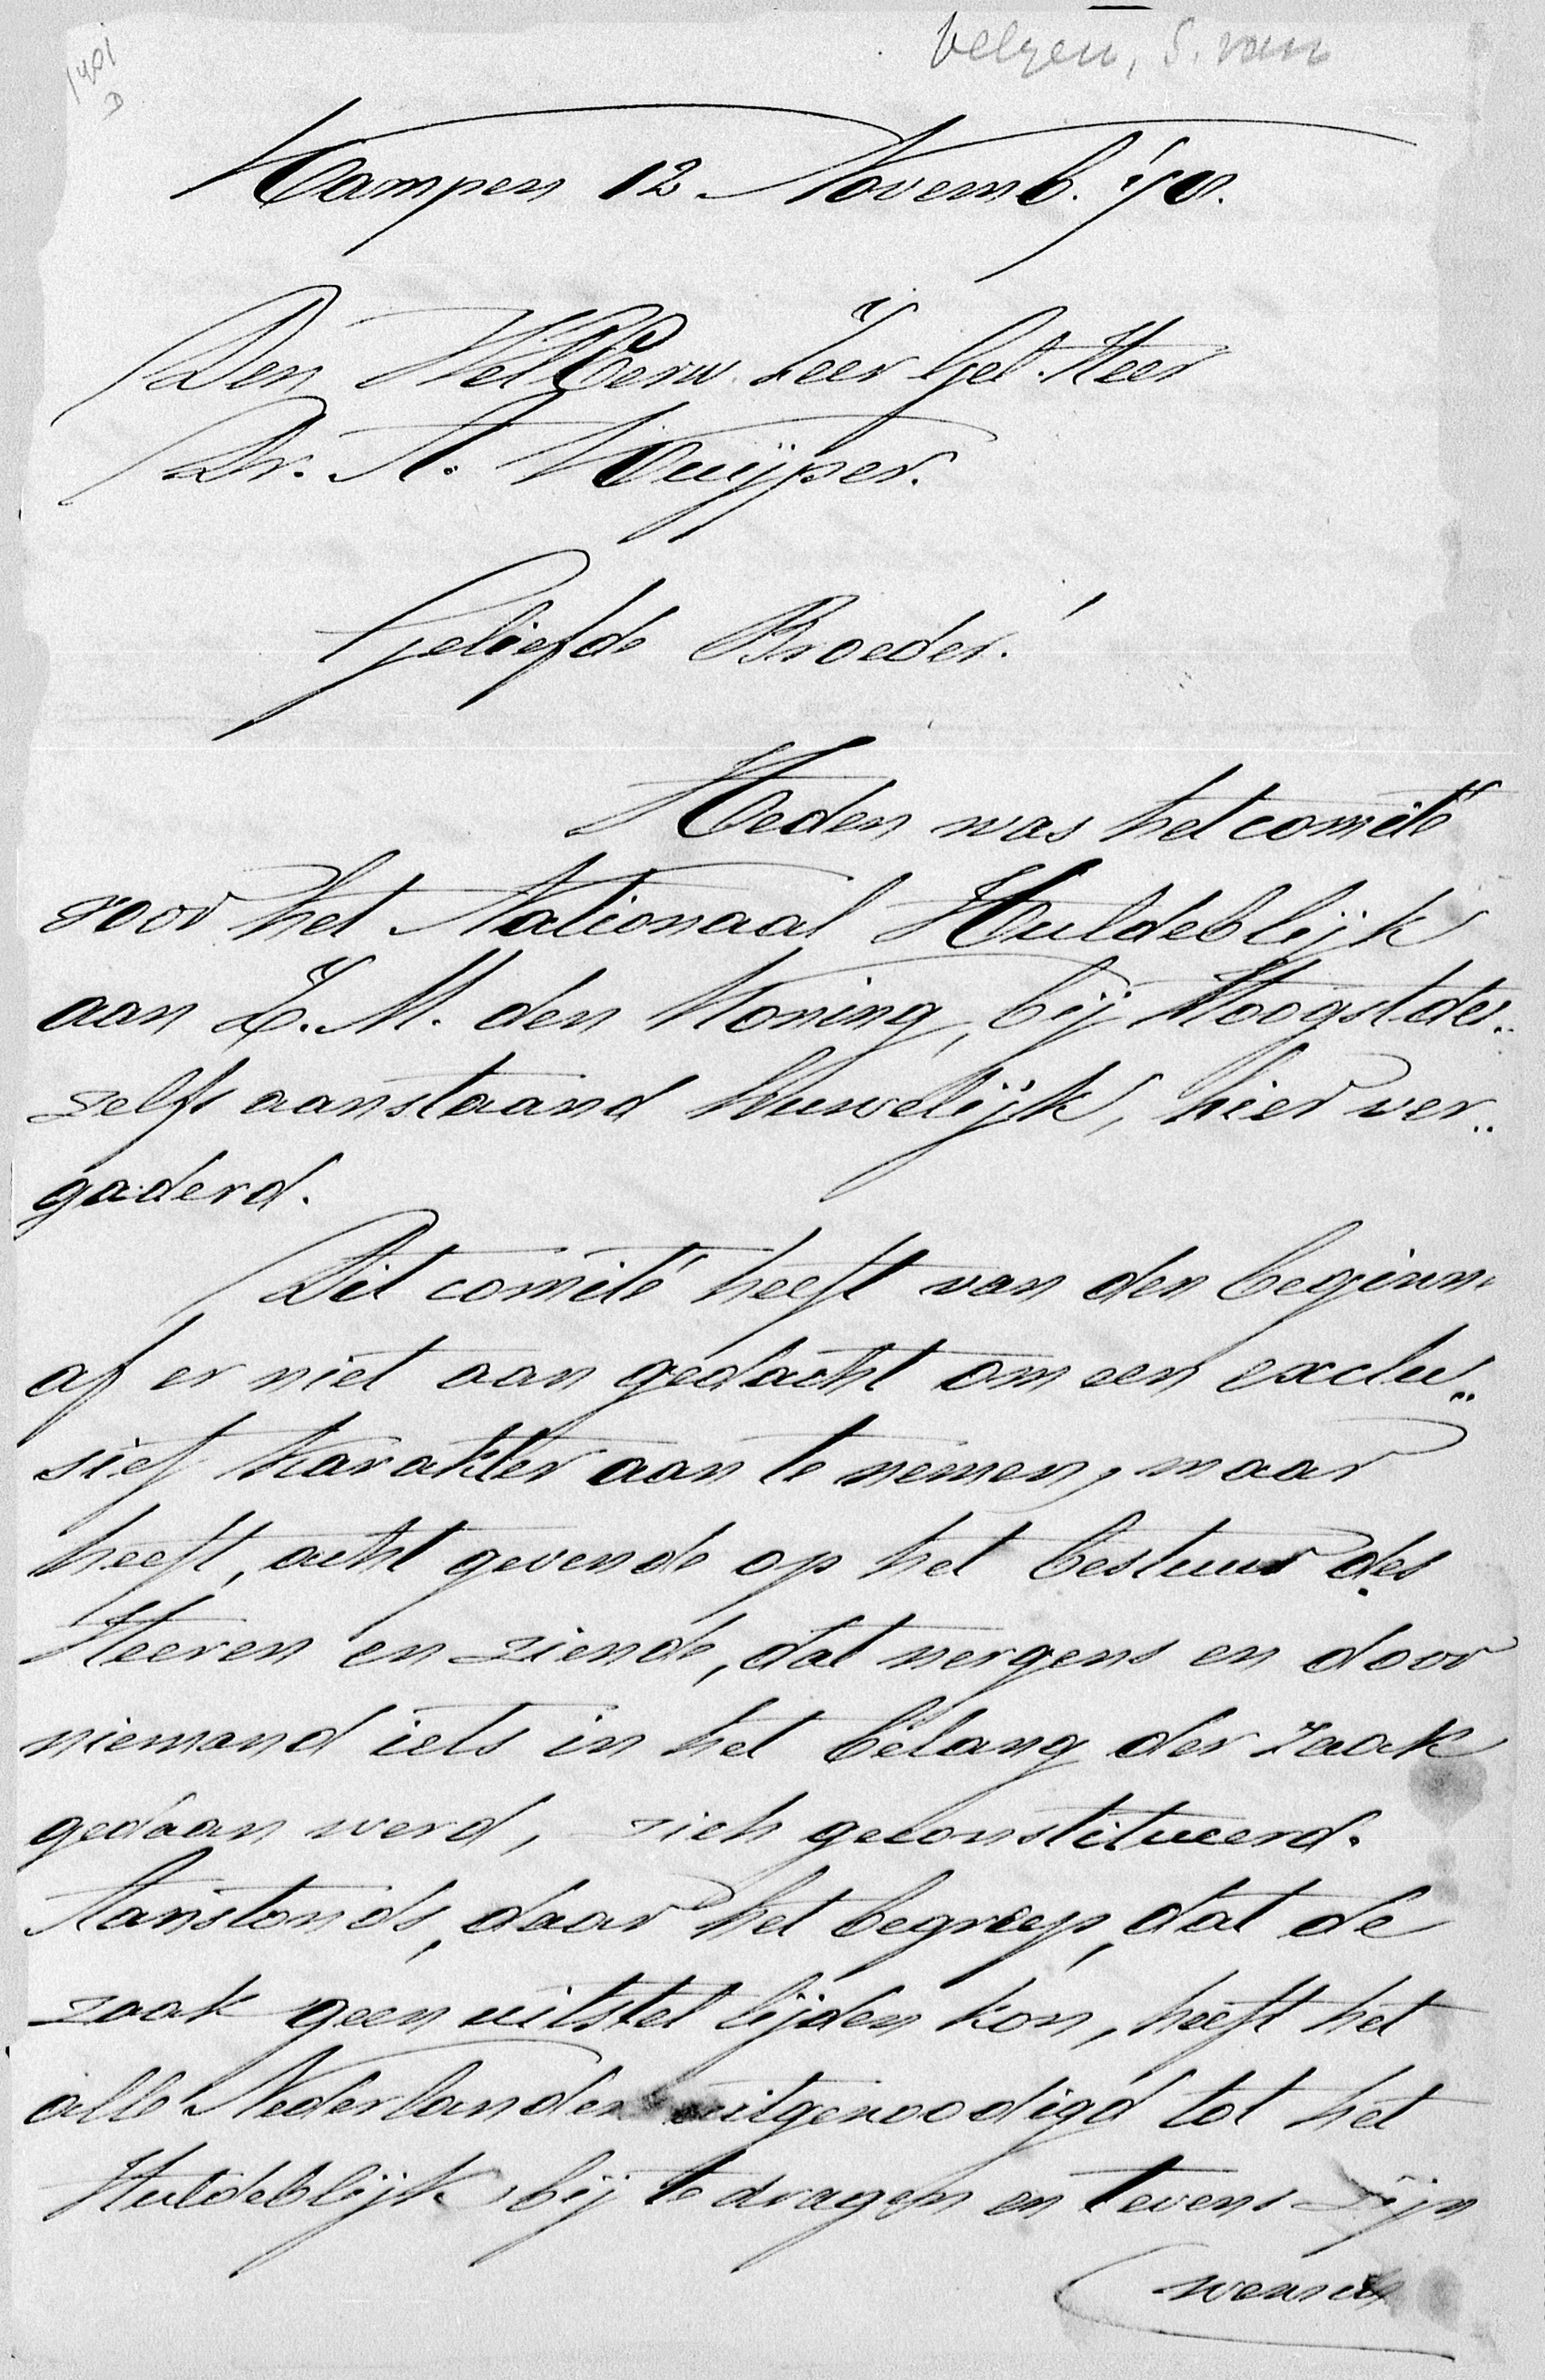 1401
D
Velzen, S. van
Kampen 12 Novemb. '78.
Den WelEerw. Zeer Gel. Heer
Dr. A. Kuijper.
Geliefde Broeder!
Heden was het comité
voor het Nationaal Huldeblijk
aan Z. M. den Koning, bij Hoogstdes„
zelfs aanstaand huwelijk, hier ver„
gaderd.
Dit comité heeft van den beginne
af er niet aan gedacht om een exclu„
sief karakter aan te nemen, maar
heeft, acht gevende op het bestuur des
Heeren en ziende, dat nergens en door
niemand iets in het belang der zaak
gedaan werd, zich geconstitueerd.
Aanstonds, daar het begreep, dat de
zaak geen uitstel lijden kon, heeft het
alle Nederlanders uitgenoodigd tot het
Huldeblijk bij te dragen en tevens zijn
wensch